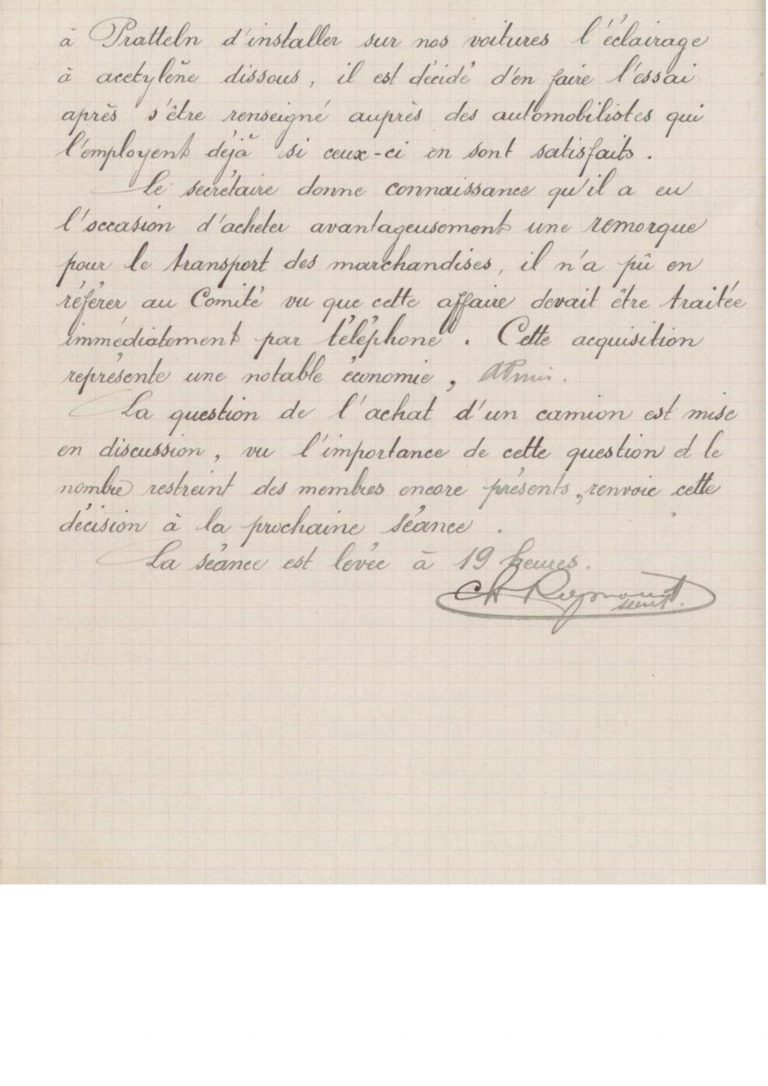 à Pratteln d'installer sur nos voitures l'éclairage
à acetylène dissous, il est décidé d'en faire l'essai
après s'être renseigné auprès des automobilistes qui
l'employent déjà si ceux-ci en sont satisfaits.
Le secrétaire donne connaissance qu'il a eu
l'occasion d'acheter avantageusement une remorque
pour le transport des marchandises, il n'a pû en
référer au Comité vu que cette affaire devait être traitée
immédiatement par téléphone. Cette acquisition
représente une notable économie,
La question de l'achat d'un camion est mise
en discussion, vu l'importance de cette question et le
nombre restreint des membres encore présents, renvoie cette
décision à la prochaine séance.
La séance est levée à 19 heures.